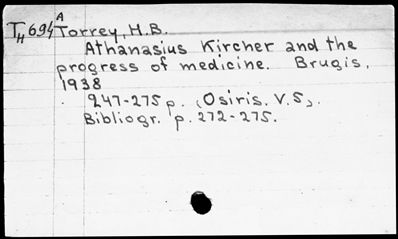 TH694 A Torrey, H.B.
Athanasius Kircher and the
progress of medicine. Brugis,
1938
247-275 p. (Osiris. V.5).
Bibliogr. p. 272-275.